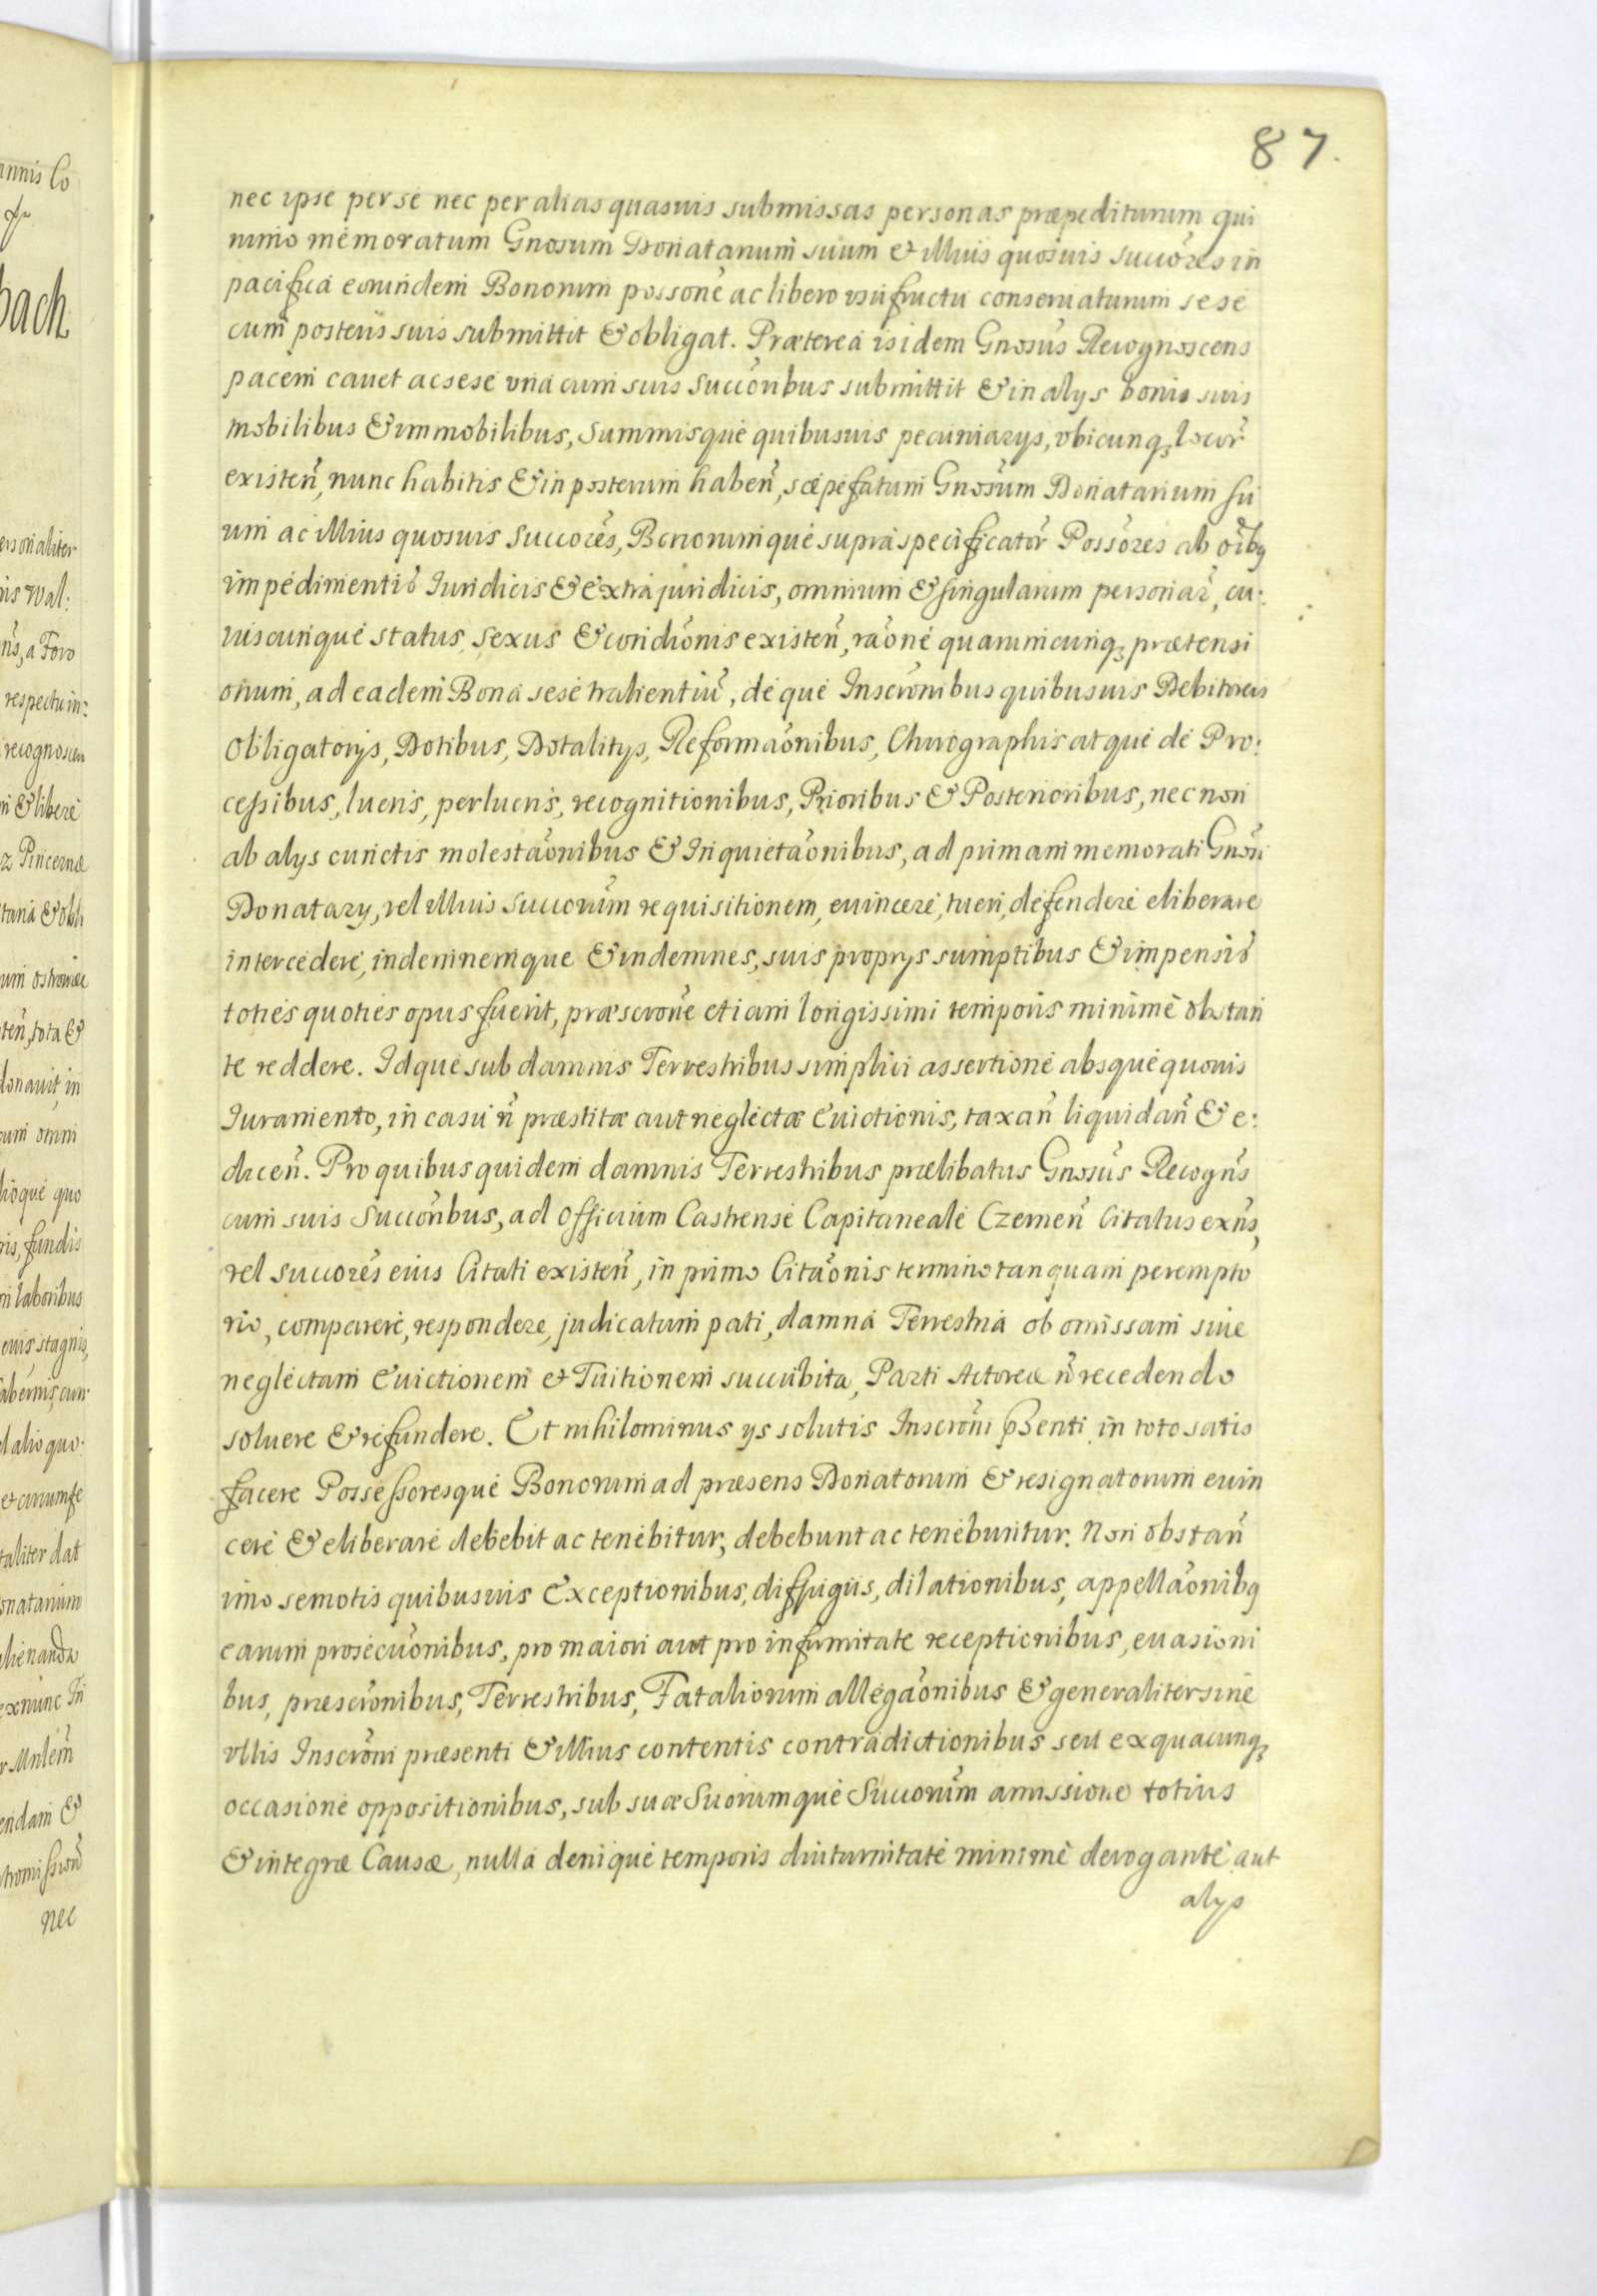 87.
nec ipse per se nec per alias quasuis submissas personas præpediturum qui
nimo memoratum Gnosum Donatarium suum et illius quosuis succores in
pacifica eorundem Bonorum possone ac libero vsufructu conseruaturum sese
cum posteris suis submittit & obligat. Præterea isidem Gnosus Recognoscens
pacem cauet ac sese vna cum suis succoribus submittit & in alys bonis suis
mobilibus & immobilibus, summisque quibusuis pecuniarys, vbicunq locor
existen, nunc habitis & in posterum haben, sæpefatum Gnosum Donatarium su
um ac illius quosuis succores, Bonorumque supra specificator Possores ab oibq
impedimentis Iuridicis & extrajuridicis, omnium & singularum personar, cu:
iuscunque status sexus & condionis existen, raone quarumcunq prætensi
onum, ad eadem Bona sese trahentiu, de que Inscronibus quibusuis Debitoreis
Obligatorijs, Dotibus, Dotalitys, Reformaonibus, Chirographis atque de Pro:
cessibus, lucris, perlucris, recognitionibus, Prioribus & Posterioribus, nec non
ab alys cunctis molestaonibus & Inquietaonibus, ad primam memorati Gnosi
Donatary, vel illius succorum requisitionem, euincere, tueri, defendere eliberare
intercedere, indemnemque & indemnes, suis proprys sumptibus & impensis
toties quoties opus fuerit, præscrone etiam longissimi temporis minimè obstan
te reddere. Idque sub damnis Terrestribus simplici assertione absque quouis
Iuramento, in casu n præstitæ aut neglectæ Euictionis, taxan liquidan & e:
dicen. Pro quibus quidem damnis Terrestribus prælibatus Gnosus Recogns
cum suis succoribus, ad Officium Castrense Capitaneale Czemen Citatus exns,
vel succores eius Citati existen, in primo Citaonis termino tanquam perempto
rio, comparere, respondere, judicatum pati, damna Terrestria ob omissam siue
neglectam Euictionem et Tuitionem succubita, Parti Actoreæ n recedendo
soluere & refundere. Et nihilominus ys solutis Inscroni psenti in toto satis
facere Possessoresque Bonorum ad præsens Donatorum & resignatorum euin
cere & eliberare debebit ac tenebitur, debebunt ac tenebuntur. Non obstan
imo semotis quibusuis Exceptionibus, diffugiis, dilationibus, appellaonibq
earum prosecuonibus, pro maiori aut pro infirmitate receptionibus, euasioni
bus, præscronibus, Terrestribus, Fataliorum allegaonibus & generaliter sine
vllis Inscroni præsenti & illius contentis contradictionibus seu exquacunq
occasione oppositionibus, sub suæ Suorumque Succorum amissione totius
& integræ Causæ, nulla denique temporis diuturnitate minimè derogante aut
alys